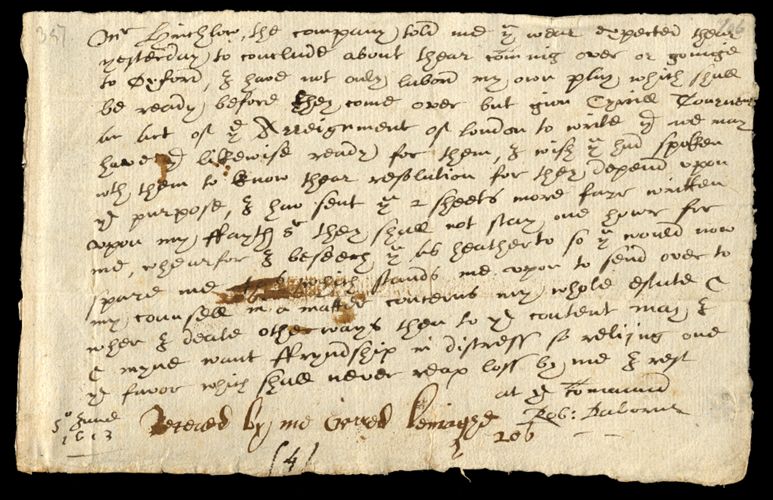 Mr Hinchlow, the company told me yu wear expected thear
yesterday to conclude about thear coming over or goinge
to Oxford, I have not only labord my own play which shall
be ready before they come over but given Cyrill Tourneur
an act of ye Arreignment of london to write yt we may
have yt likewise ready for them, I wish yu had spoken
wth them to know thear resolution for they depend uppon
yr purpose, I hav sent yu 2 sheets more fayr written
uppon my ffayth Sr they shall not stay one howr for
me, whearfor I beseech yu as heatherto so yu would now
spare me which stands me uppon to send over to
my counsell in a matter concerns my whole estate &
wher I deale otherways then to yr content may I
& myne want ffryndship in distress so relijng one
yr favor which shall never reap loss by me I rest
at yr Comaund
5o June Rob: Daborne
1613
Receved by me Garred leniaghe 20s
(4)